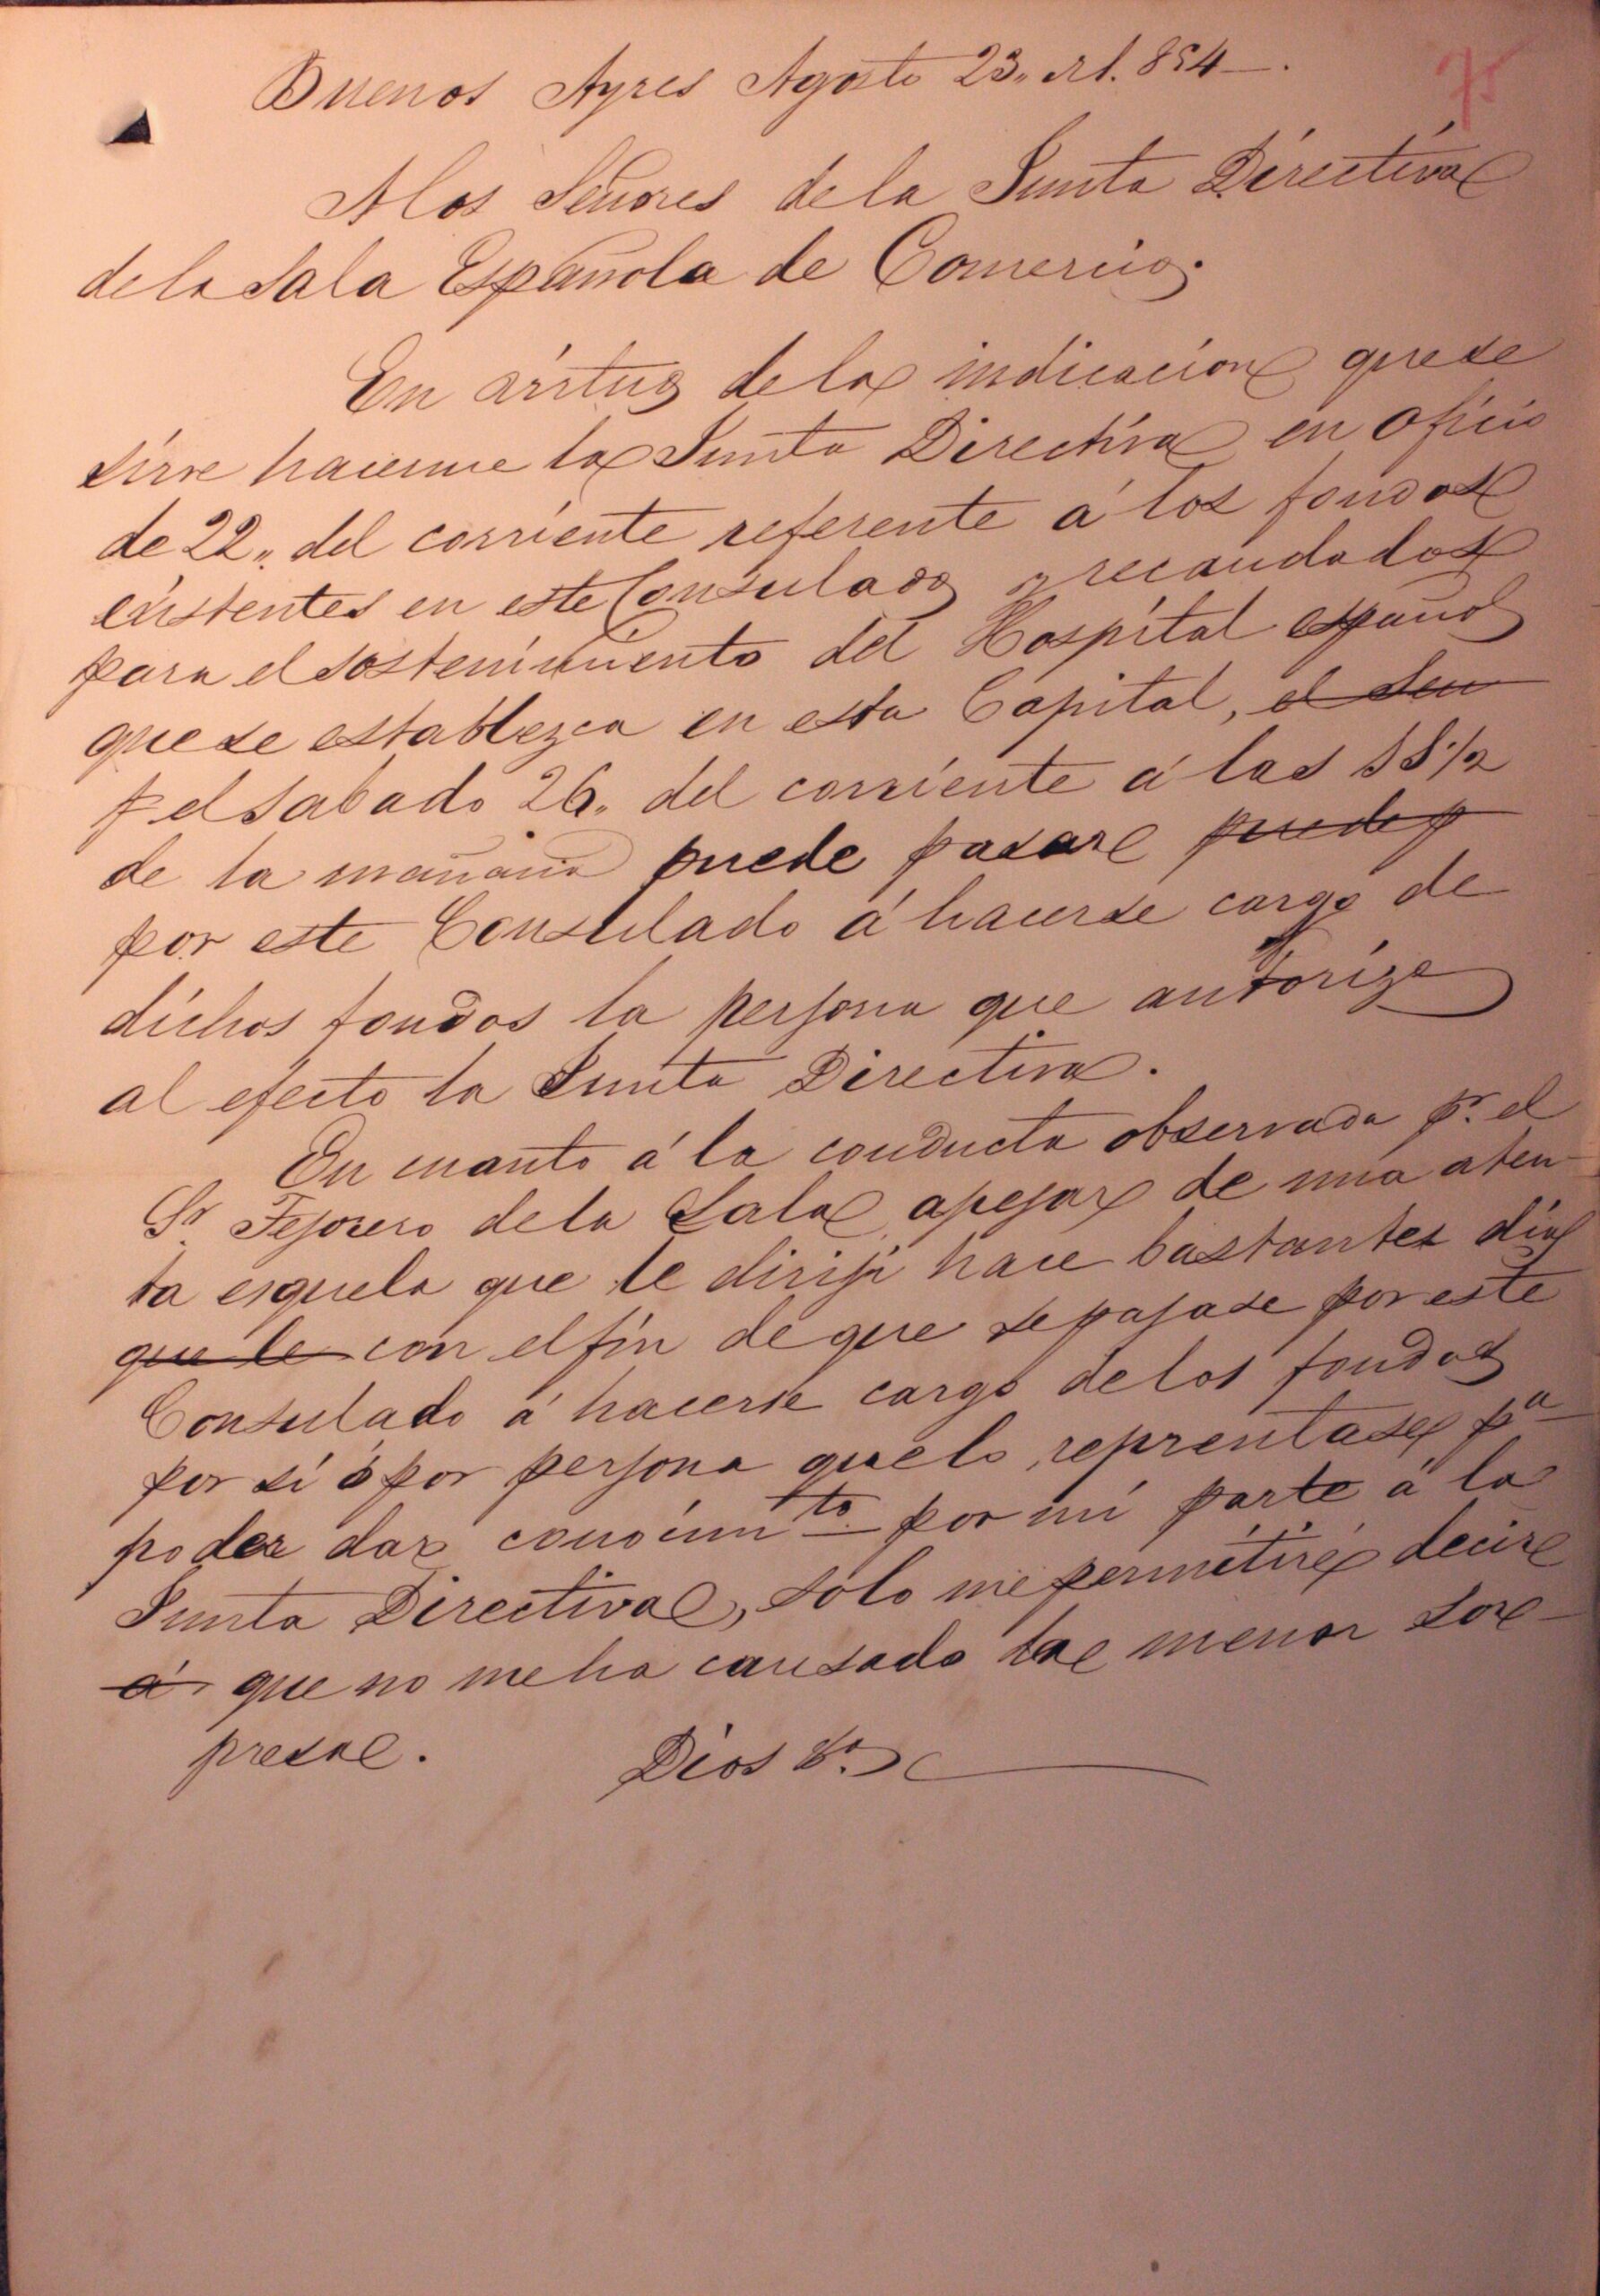 75
Buenos Ayres Agosto 23„ de 1.854—.
A los Señores de la Junta Directiva
de la Sala Española de Comercio.
En virtud de la indicacion que se
sirve hacerme la Junta Directiva en oficio
de 22„ del corriente referente á los fondos
existentes en este Consulado y recaudados
para el sostenimiento del Hospital español
que se establezca en esta Capital, el Sen
el Sabado 26„ del corriente á las 11 1/2
de la mañana puede pasar puede p
por este Consulado á hacerse cargo de
dichos fondos la persona que autorize
al efecto la Junta Directiva.
En cuanto á la conducta observada pr. el
Sr. Tesorero de la Sala, apesar de una aten-
ta esquela que le dirijí hace bastantes dias
que le con el fin de que se pasase por este
Consulado á hacerse cargo de los fondos
por sí ó por persona que lo reprentase pa
poder dar conocimto. por mi parte á la
Junta Directiva, solo me permitiré decir
á que no me ha causado la menor sor-
presa.
Dios &a.